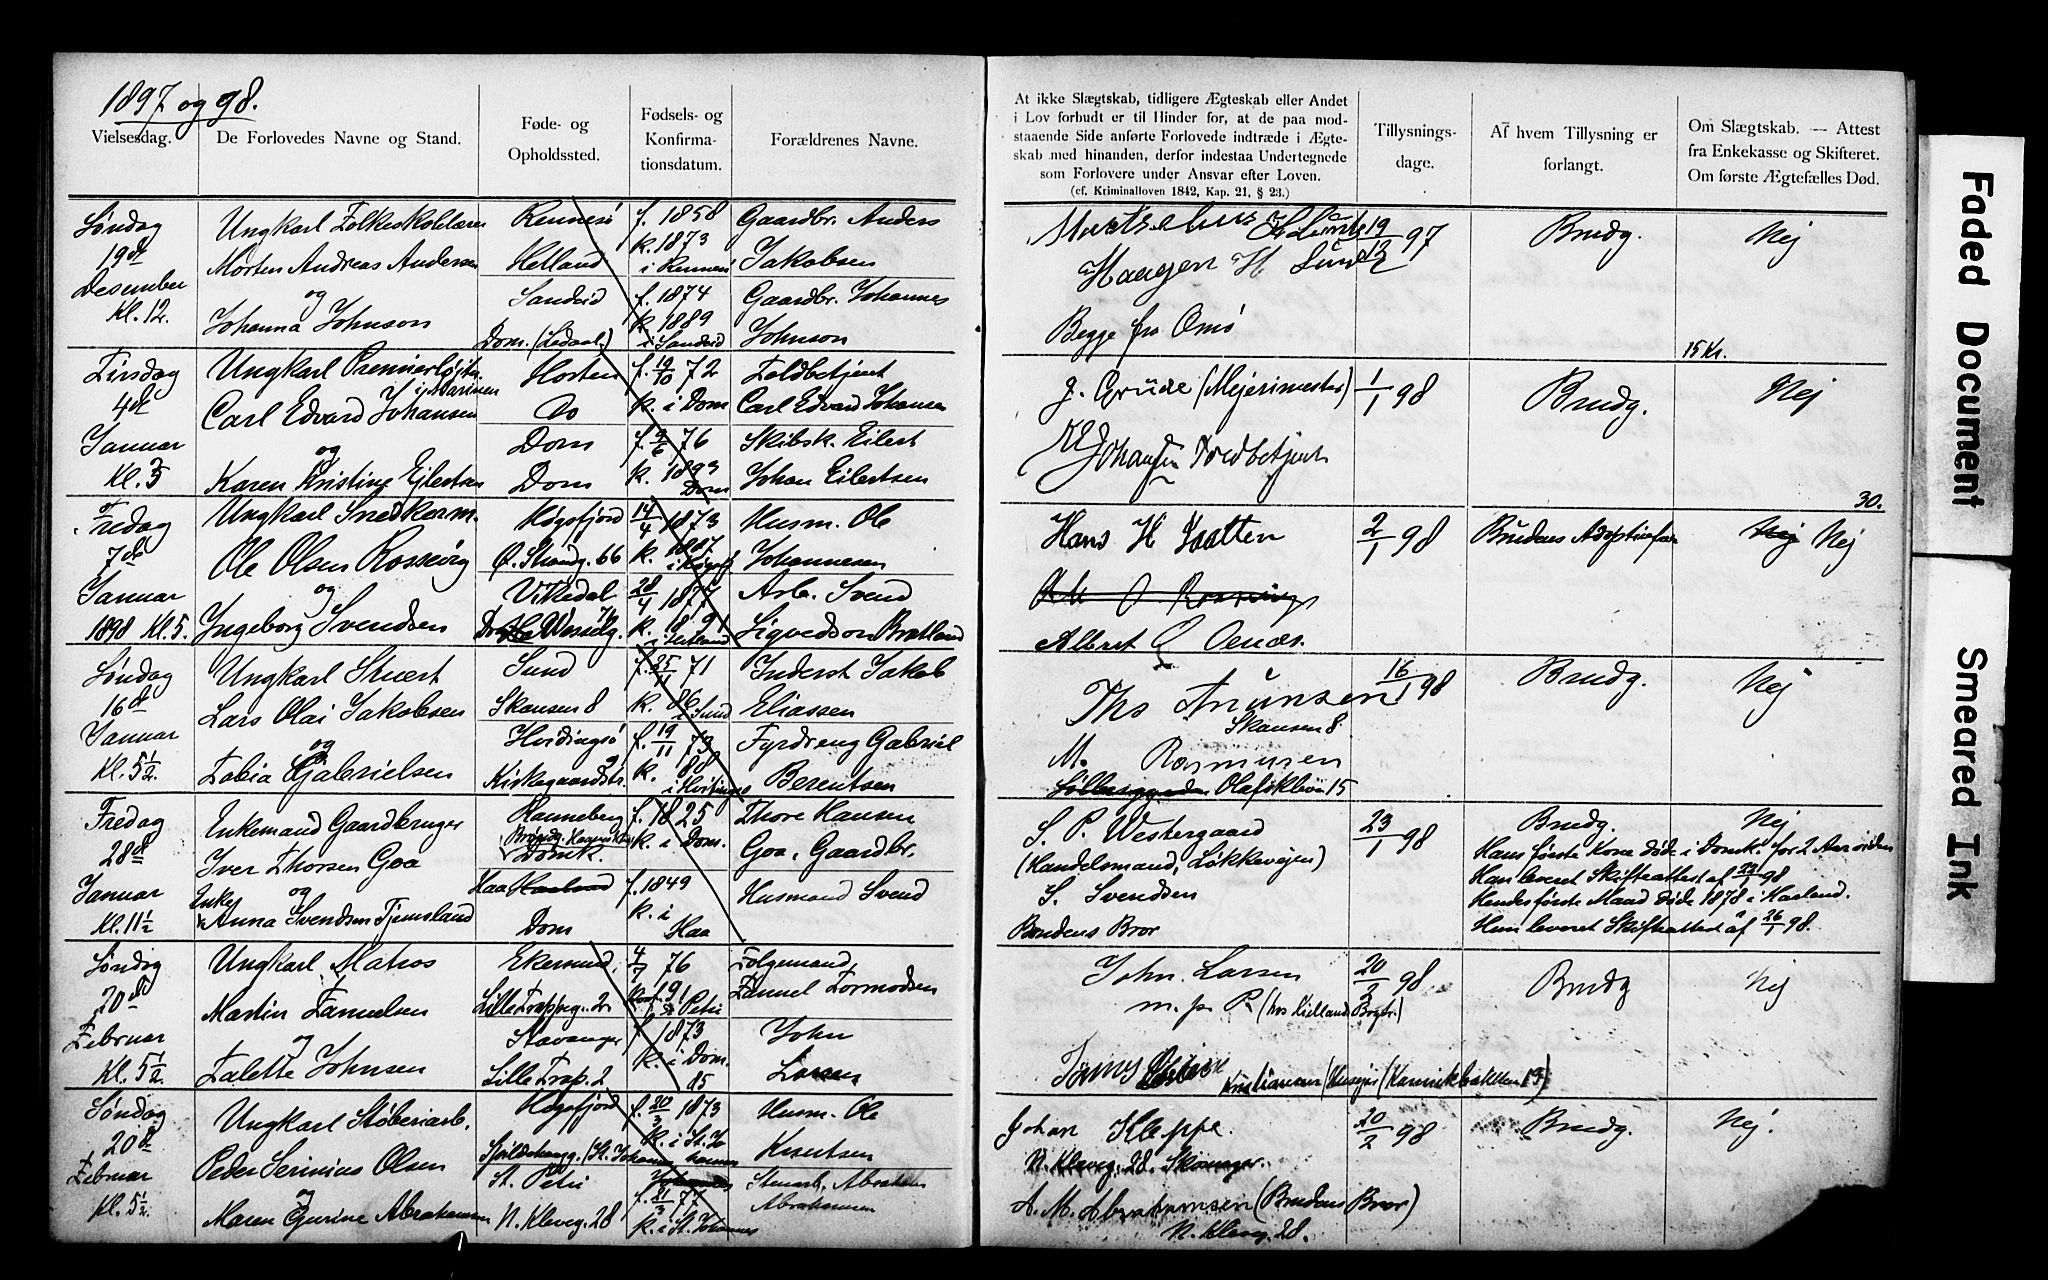 1897 og 98.
Vielsesdag.
De Forlovedes Navne og Stand.
Føde- og
Opholdssted.
Fødsels- og
Konfirma-
tionsdatum.
Forældrenes Navne.
At ikke Slægtskab, tidligere Ægteskab eller Andet
i Lov forbudt er til Hinder for, at de paa mod-
staaende Side anførte Forlovede indtræde i Ægte-
skab med hinanden, derfor indestaa Undertegnede
som Forlovere under Ansvar efter Loven.
(cf. Kriminalloven 1842, Kap. 21, § 23.)
Tillysnings-
dage.
Af hvem Tillysning er
forlangt.
Om Slægtskab. — Attest
fra Enkekasse og Skifteret.
Om første Ægtefælles Død.
Søndag
19de
Desember
Kl. 12.
Ungkarl Folkeskolelærer
Morten Andreas Andersen
og
Johanna Johnson
Rennesø
Helland
Sandeid
Dom. (Ledaal)
f. 1858
k. 1873
i Rennesø
f. 1874
k. 1889
i Sandeid
Gaardbr. Anders
Jakobsen
Gaardbr. Johannes
Johnson
Haagen H Lund
Begge fra Omø
19/12 97
Brudg.
Nej
15 Kr.
Tirsdag
4de
Januar
Kl. 5
Ungkarl Premierløjtn.
i Marinen
Carl Edvard Johansen
og
Karen Kristine Ejlertsen
Horten
Do
Dom
Dom
f. 19/10 72
k. i Dom
f. 2/6 76
k. 1893
Dom
Toldbetjent
Carl Edvard Johansen
Skibsk. Eilert
Johan Eilertsen
J. Grude (Mejerimester)
Johansen Toldbetjent
1/1 98
Brudg.
Nej
30.
Fredag
7de
Januar
1898 Kl. 5.
Ungkarl Snedkerm.
Ole Olsen Rossavig
og
Ingeborg Svendsen
Høgsfjord
Ø. Strandg. 66
Vikedal
f. 14/4 1873
k. 1887
i Høgsf.
28/4 1877
k. 1891
Husm. Ole
Johannesen
Arb. Svend
Sigvedson Bratland
Hans H Tratten
Albret Q Oenæs.
2/1 98
Brudens Adoptivfar
Nej Nej
Søndag
16de
Januar
Kl. 5½.
Ungkarl Stuert
Lars Olai Jakobsen
og
Tobia Gabrielsen
Sund
Skansen 8
Hvidingsø
Kirkegaardstr.
f. 25/11 71
k. 86
i Sund
f. 19/11 73
k. 88
i Hvitingsø
Inderst Jakob
Eliassen
Fyrdreng Gabriel
Berentsen
Ths Anunsen
Skansen 8.
M. Rasmussen
Olafskleven 15
16/1 98
Brudg.
Nej
Fredag
28de
Januar
Kl. 11½
Enkemand Gaardbruger
Iver Thorsen Goa
og
Enke
Anna Svendsen Tjemsland
Ranneberg
Domk.
Haa
Dom
f. 1825
k. i Dom.
f. 1849
k. i
Haa
Thore Hansen
Goa, Gaardbr.
Husmand Svend
S. P. Westergaard
(Handelsmand, Løkkevejen)
S. Svendsen
Brudens Bror
23/1 98
Brudg.
Nej
Hans første Kone døde i Domk. for 2 Aar siden
Han leveret Skifteattest af 22/1 98
Hendes første Mand døde 1878 i Harland.
Hun leveret Skifteattest af 26/1 98.
Søndag
20de
Februar
Kl. 5½.
Ungkarl Matros
Martin Samuelsen
og
Talette Johnsen
Ekersund,
Lille Trapveg. 2
Stavanger
Lille Trap. 2
4/7 76
Petri
f. 1873
k. i Dom.
Følgemand,
Samuel Tormodsen
John
Larsen
John. Larsen
m. p. P. (hos Kielland Bogtr.)
20/2 98
Brudg
Nej
Søndag
20de
Februar
Kl. 5½.
Ungkarl Støberiarb.
Peder Serinius Olsen
og
Maren Gurine Abrahamsen
Høgsfjord
St. Petri
N. Kleveg. 28
f. 20/3 1873
k. i St. Jo
hannes
f. 21/3 77
k. i St. Johannes
Husm. Ole
Knutsen
Stenarb. Abraham
Abrahamsen
Johan Kleppe.
N. Kleveg. 28. Skomager.
A. M. Abrahamsen (Brudens Bror)
N. Kleveg. 28.
20/2 98
Brudg.
Nej.
Faded Document
Smeared Ink